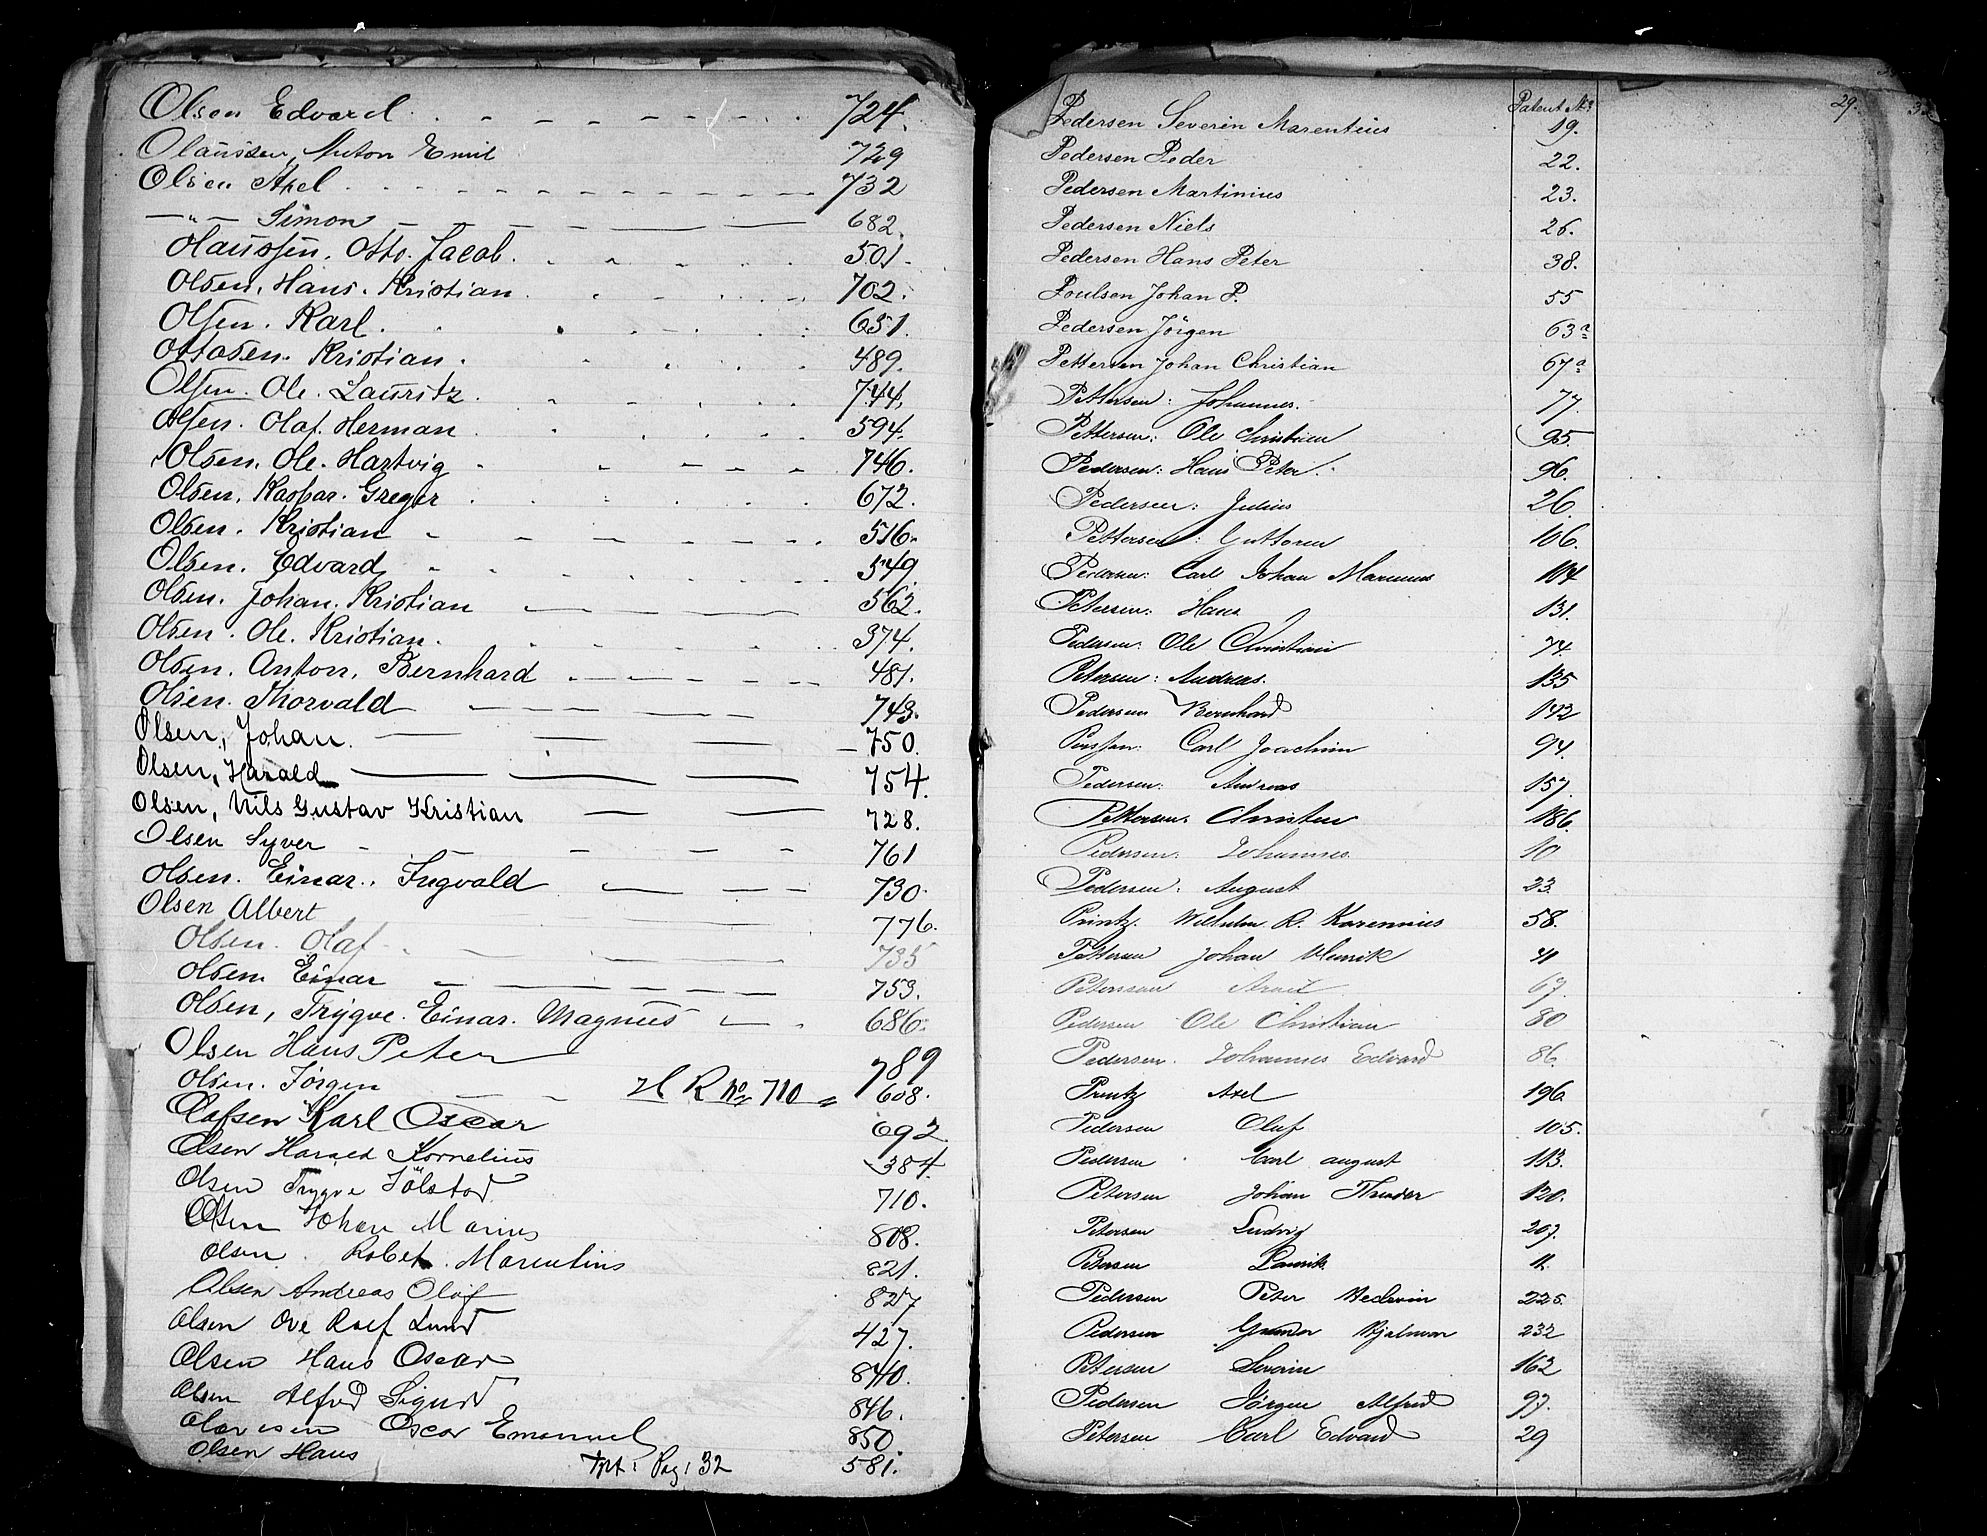 Olsen Edvard. 724.
Olaussen, Anton Emil 729
Olsen Axel 732
—"— Simon 682.
Olaussen. Otto. Jacob. 501.
Olsen. Hans. Kristian. 702.
Olsen. Karl. 651.
Ottosen. Kristian. 489.
Olsen. Ole. Lauritz. 744.
Olsen. Olaf. Herman 594.
Olsen. Ole. Hartvig 746.
Olsen. Kaspar. Greger 672.
Olsen. Kristian 516.
Olsen. Edvard 549.
Olsen. Johan. Kristian 562.
Olsen. Ole. Kristian. 374.
Olsen. Anton. Bernhard 481.
Olsen. Thorvald 743.
Olsen, Johan. 750.
Olsen, Harald 754.
Olsen, Nils Gustav Kristian 728.
Olsen Syver 761
Olsen. Einar. Ingvald 730.
Olsen Albert 776.
Olsen. Olaf 735
Olsen Einar 753.
Olsen, Trygve. Einar. Magnus 686.
Olsen Hans Peter 789
Olsen. Jørgen H R No 710 = 608.
Olafsen Karl Oscar 692
Olsen Harald Kornelius 384
Olsen Trygve Jölstad 710.
Olsen Johan Marius 808.
Olsen. Robet. Marentius 821.
Olsen Andreas Olaf 827
Olsen Ove Rolf Lund 427.
Olsen Hans Oscar 840.
Olsen Alfred Sigurd 846.
Oscar Emanuel 850.
Olsen Hans 581.
Pag: 32
29.
Patent No.
Pedersen Severin Marentius 19.
Pedersen Peder 22.
Pedersen Martinius 23.
Pedersen Niels 26.
Pedersen Hans Peter 38.
Poulsen Johan P. 55
Pedersen Jörgen 63a
Pettersen Johan Christian 67a
Pettersen: Johannes. 77.
Pettersen: Ole Christian 95.
Pedersen: Hans Peter. 96.
Pedersen: Julius 26.
Pettersen: Guttorm 106.
Pedersen: Carl Johan Marinius 104
Petersen: Hans 131.
Pedersen: Ole Christian 74.
Petersen: Andreas. 135
Pedersen Bernhard 142
Carl Joachim 94.
Pedersen: Andreas 157.
Pettersen. Christen 186.
Pedersen: Johannes. 10
Pedersen: August 23.
Printz. Wilhelm R. 58.
Pettersen Johan Henrik 41
Petersen 67.
Pedersen Ole Christian 80
Pedersen. Johannes Edvard 86.
Printz Axel 196.
Pedersen Oluf 105.
Pedersen Carl august 113.
Petersen Johan 120.
Petersen Ludvig 207.
11.
Pedersen Peter 225.
Pedersen Hjalmar 232
Petersen Severin 162
Pedersen Jørgen Alfred 97.
Petersen Carl Edvard 29